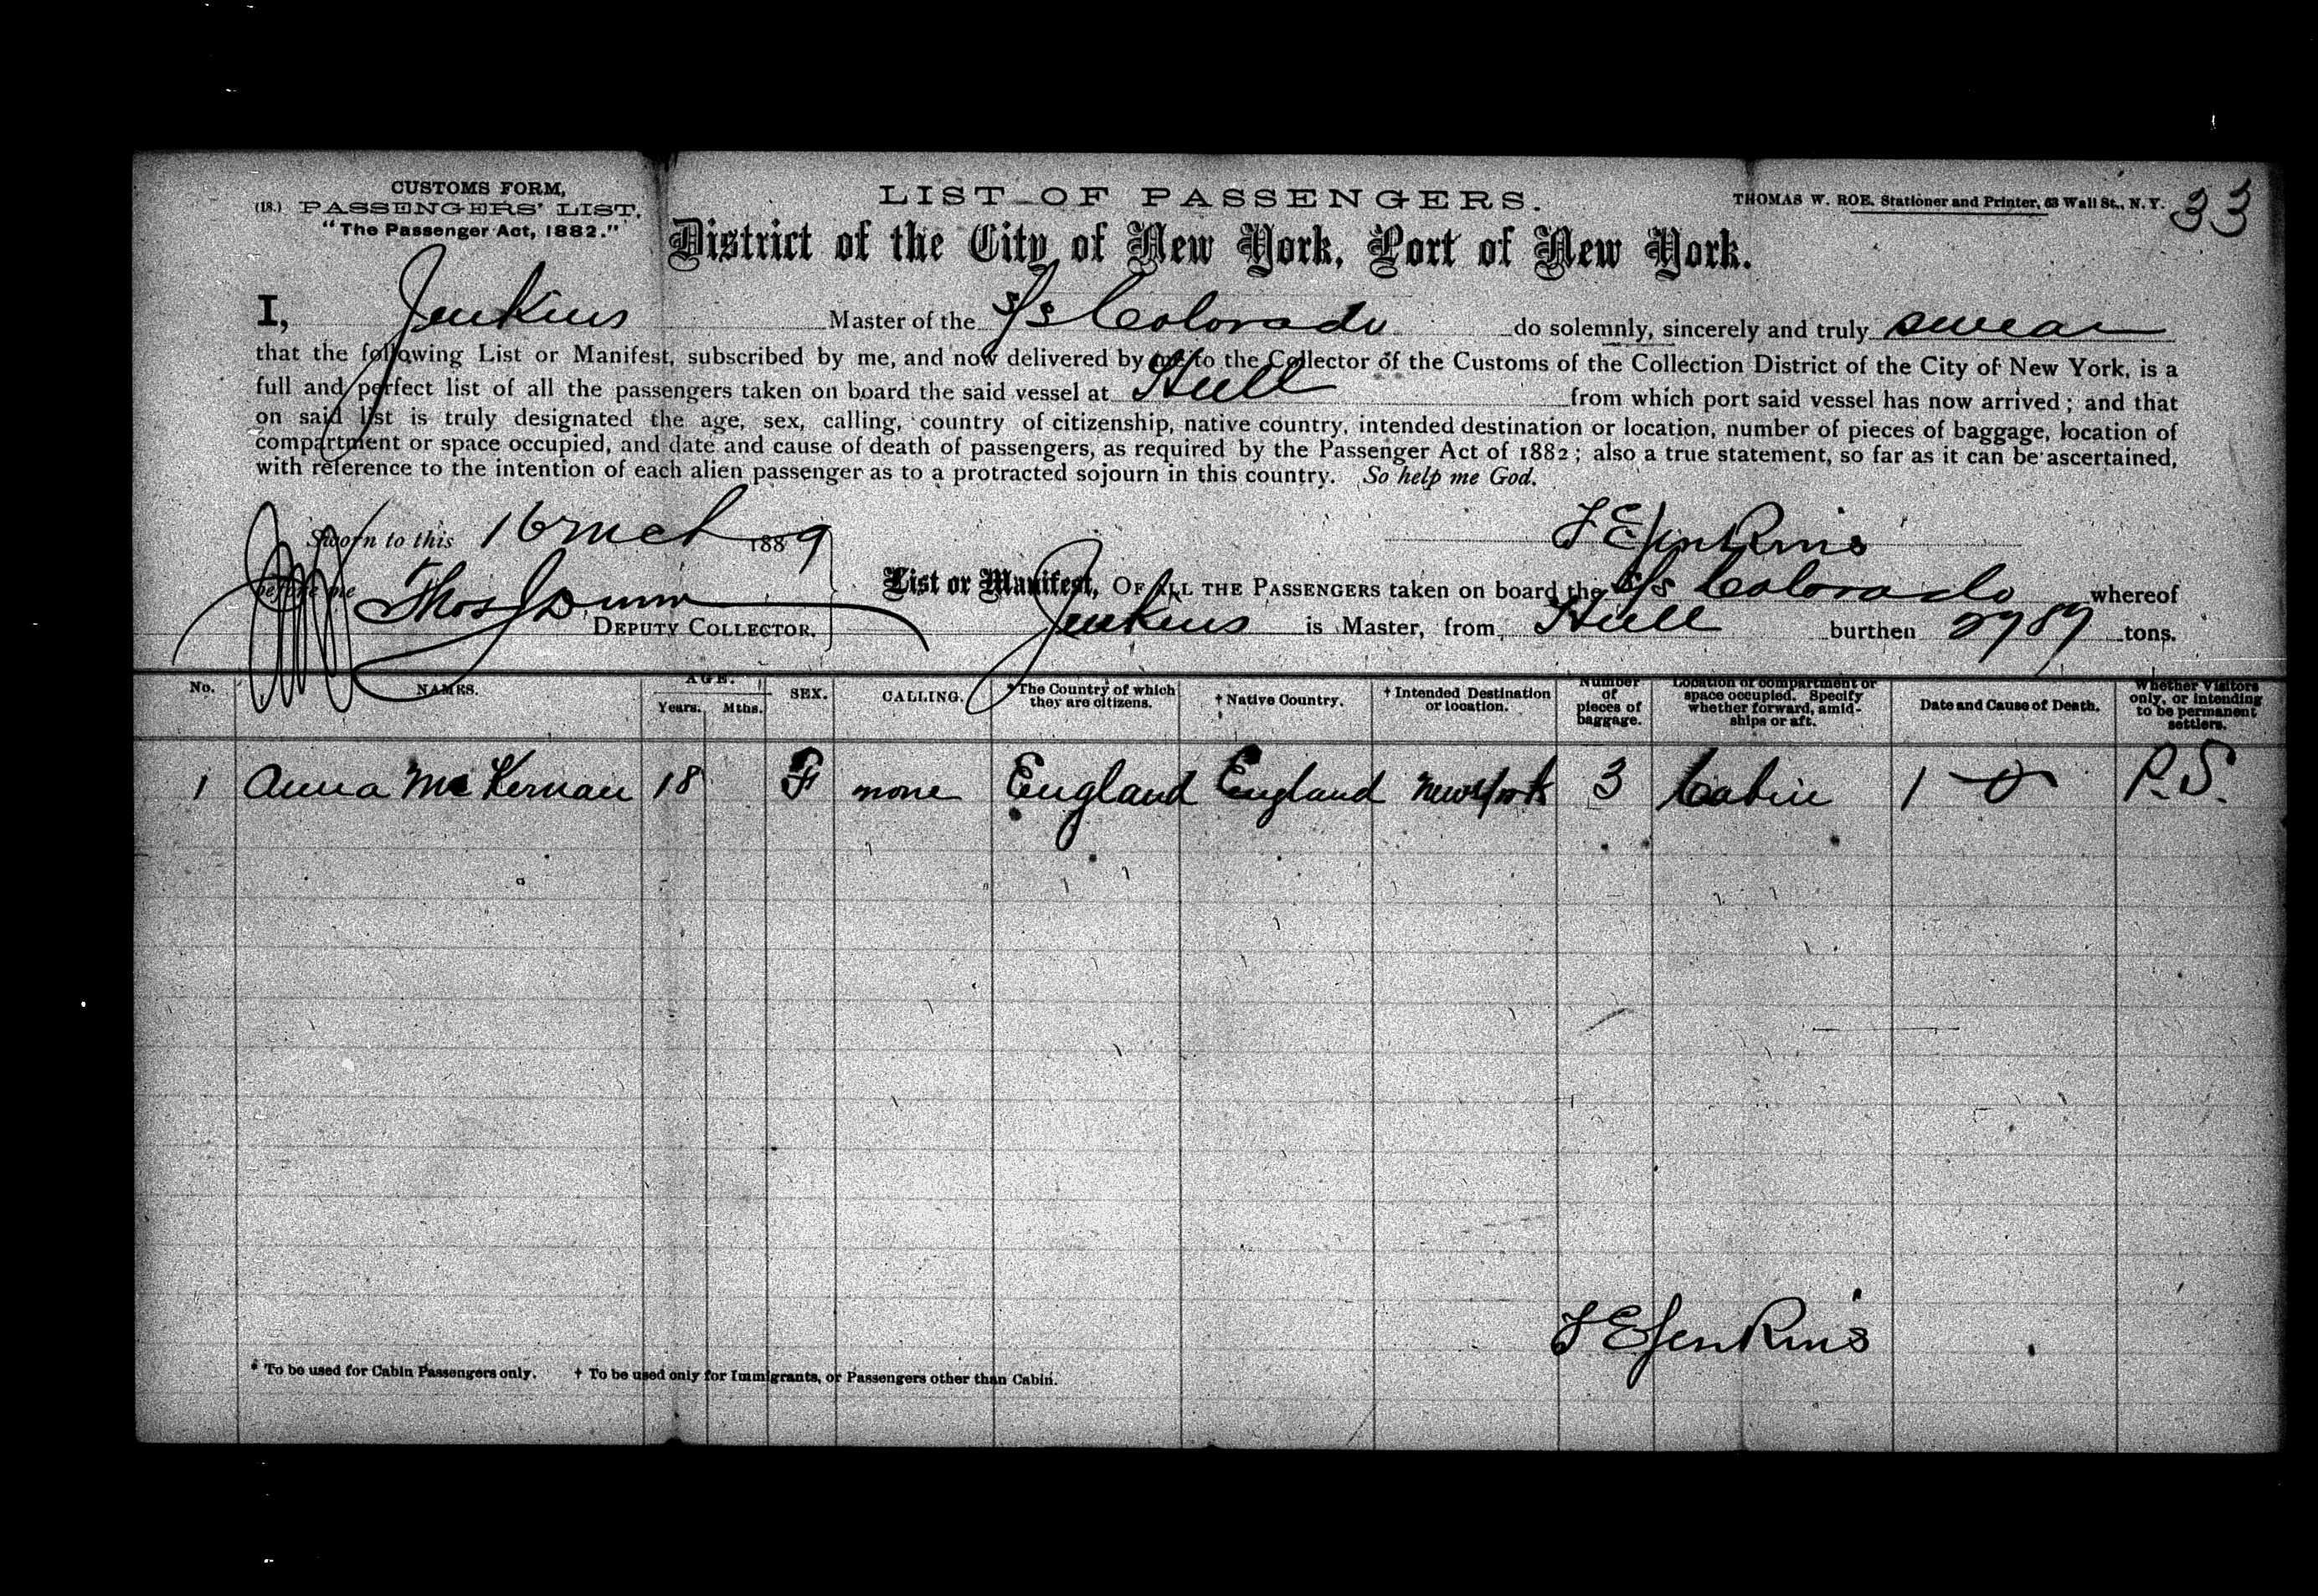 CUSTOMS FORM,
(18.) PASSENGERS' LIST.
"The Passenger Act, 1882."
LIST OF PASSENGERS.
THOMAS W. ROE, Stationer and Printer, 63 Wall St., N. Y.
33
District of the City of New York, Port of New York.
I, Jenkins Master of the S/S Colorado do solemnly, sincerely and truly swear
that the following List or Manifest, subscribed by me, and now delivered by me to the Collector of the Customs of the Collection District of the City of New York, is a
full and perfect list of all the passengers taken on board the said vessel at Hull from which port said vessel has now arrived; and that
on said list is truly designated the age, sex, calling, country of citizenship, native country, intended destination or location, number of pieces of baggage, location of
compartment or space occupied, and date and cause of death of passengers, as required by the Passenger Act of 1882; also a true statement, so far as it can be ascertained,
with reference to the intention of each alien passenger as to a protracted sojourn in this country. So help me God.
Sworn to this 16 Mch 1889
F E Jenkins
before me Thos J Dunn
DEPUTY COLLECTOR.
List or Manifest, OF ALL THE PASSENGERS taken on board the S/S Colorado whereof
Jenkins is Master, from Hull burthen 2787 tons.
No. NAMES. AGE. Years. Mths. SEX. CALLING. *The Country of which they are citizens. † Native Country. † Intended Destination or location. Number of pieces of baggage. Location of compartment or space occupied. Specify whether forward, amidships or aft. Date and Cause of Death. Whether Visitors only, or intending to be permanent settlers.
1 Anna McKernan 18 F none England England New York 3 Cabin 1 - 0 P.S.
F E Jenkins
* To be used for Cabin Passengers only. † To be used only for Immigrants, or Passengers other than Cabin.